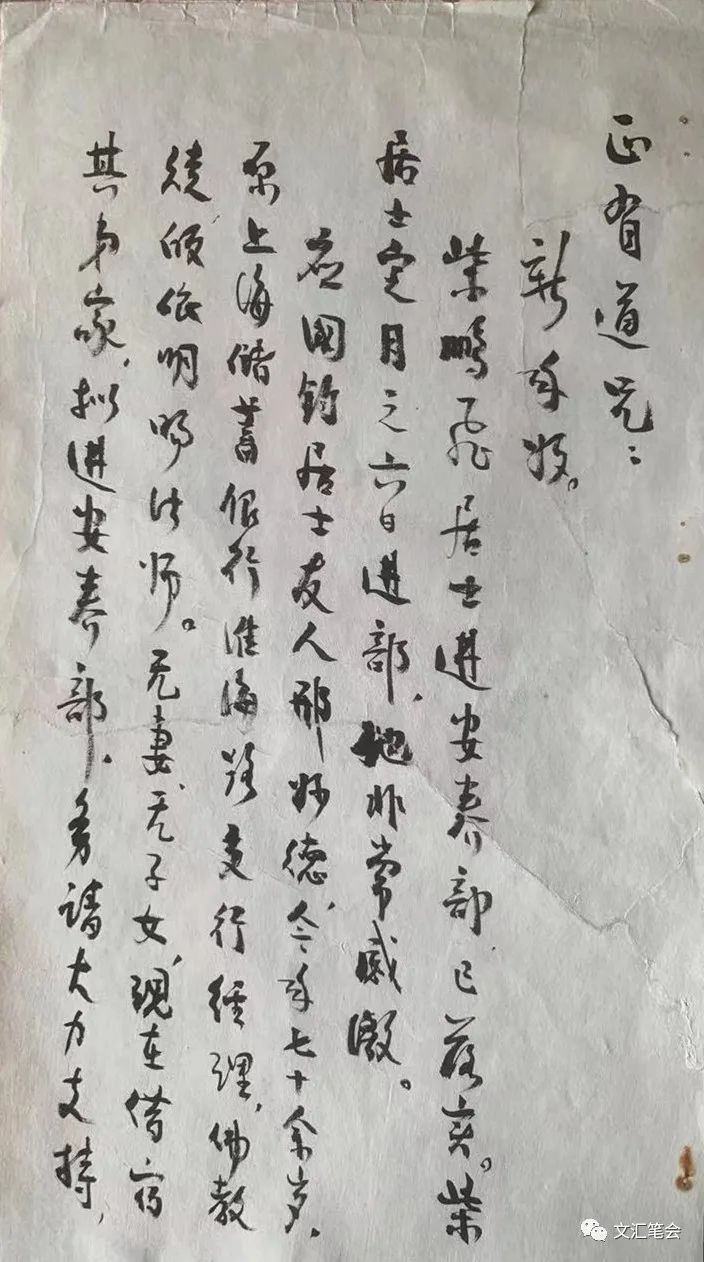 正省道兄：
新年好。
柴鹏飞居士进安养部已落实。柴
居士定月之六日进部，他非常感激。
应国钧居士友人邢妙德，今年七十余岁，
原上海储蓄银行淮海路支行经理，佛教
徒，皈依明旸法师。无妻，无子女，现在借宿
其弟家，拟进安养部，务请大力支持，
文汇笔会